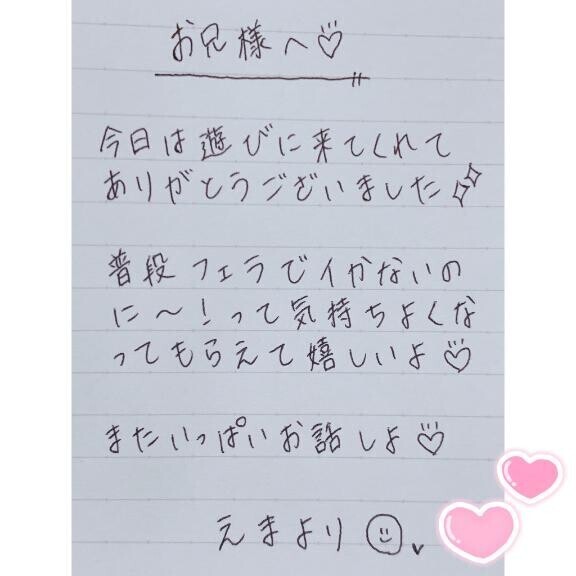 お兄様へ♡
今日は遊びに来てくれて
ありがとうございました✨
普段フェラでイかないの
に〜!って気持ちよくな
ってもらえて嬉しいよ♡
またいっぱいお話しよ♡
えまより☺